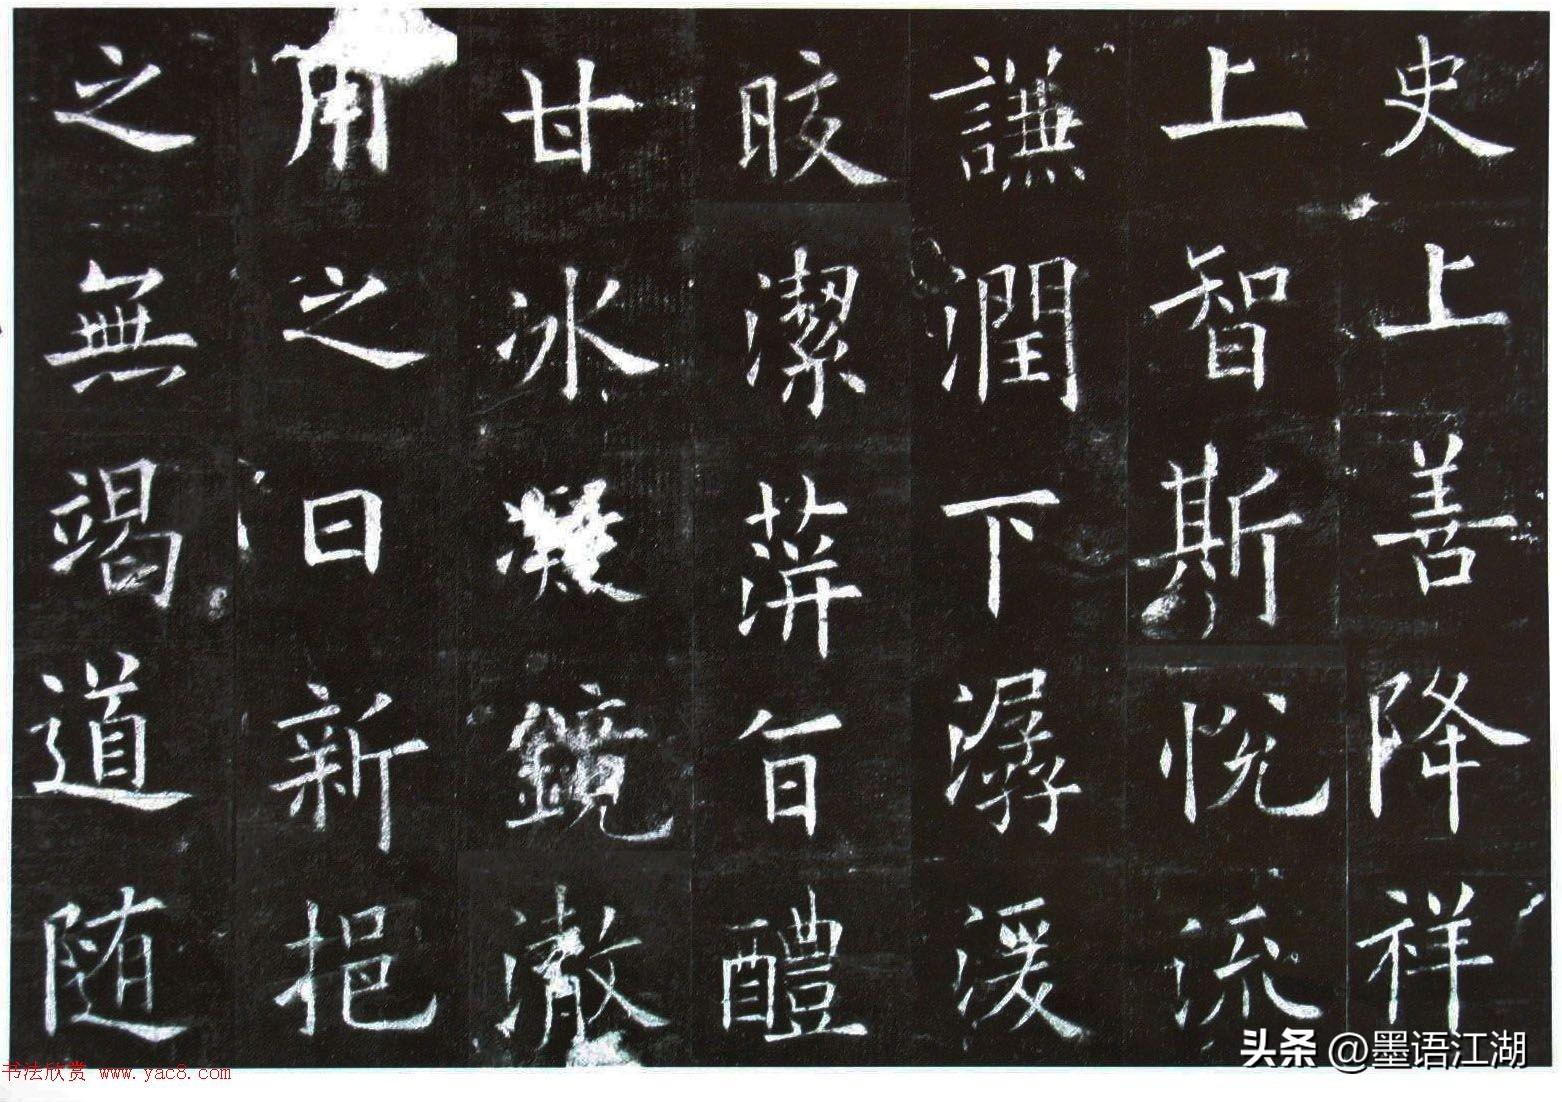 史上善降祥
上智斯悦流
謙潤下潺湲
皎潔蓱旨醴
甘冰凝鏡澈
用之日新挹
之無竭道随
头条 @墨语江湖
书法欣赏 www.yac8.com